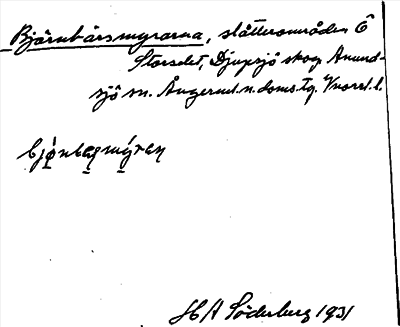 Björnbärsmyrarna, slåtterområden Ö
Storselet, Djupsjö skog Anund-
sjö sn. Ångerml. n. doms. tg. Vnorrl. l.
H A Söderberg 1931